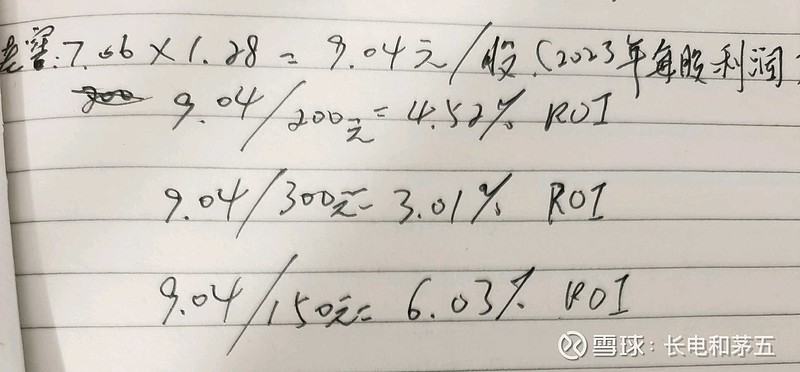 老窖:7.06×1.28=9.04元/股.(2023年每股利润
9.04/200元=4.52% ROI
9.04/300元=3.01% ROI
9.04/150元=6.03% ROI
雪球:长电和茅五